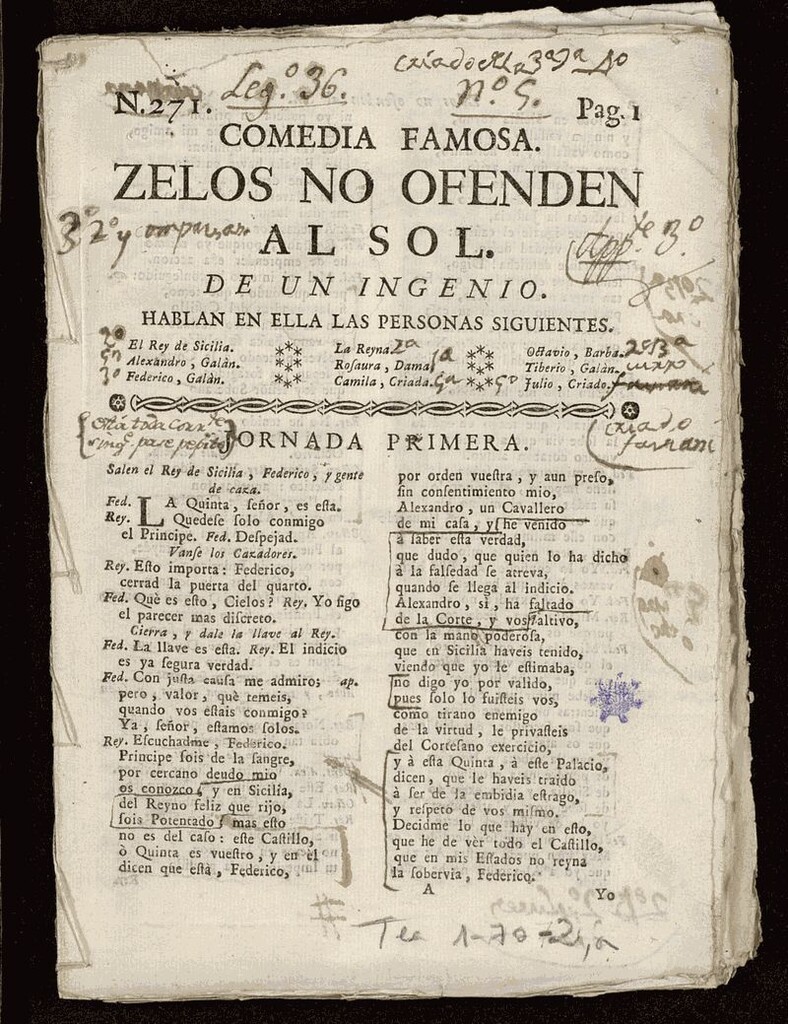 criado
Leg.º 36.
Nº 5.
N.271.
Pag. 1
COMEDIA FAMOSA.
ZELOS NO OFENDEN
AL SOL.
3º 2º y comparsas
3º
DE UN INGENIO.
HABLAN EN ELLA LAS PERSONAS SIGUIENTES.
2º El Rey de Sicilia.
Alexandro, Galán.
3º Federico, Galán.
La Reyna. 2ª
Rosaura, Dama. 1ª
Camila, Criada.
Octavio, Barba.
Tiberio, Galán.
Julio, Criado.
criado
JORNADA PRIMERA.
Salen el Rey de Sicilia, Federico, y gente
de caza.
Fed. LA Quinta, señor, es esta.
Rey. Quedese solo conmigo
el Principe. Fed. Despejad.
Vanse los Cazadores.
Rey. Esto importa: Federico,
cerrad la puerta del quarto.
Fed. Què es esto, Cielos? Rey. Yo sigo
el parecer mas discreto.
Cierra, y dale la llave al Rey.
Fed. La llave es esta. Rey. El indicio
es ya segura verdad.
Fed. Con justa causa me admiro; ap.
pero, valor, què temeis,
quando vos estais conmigo?
Ya, señor, estamos solos.
Rey. Escuchadme, Federico.
Principe sois de la sangre,
por cercano deudo mio
os conozco; y en Sicilia,
del Reyno feliz que rijo,
sois Potentado; mas esto
no es del caso: este Castillo,
ò Quinta es vuestro, y en èl
dicen que està, Federico,
por orden vuestra, y aun preso,
sin consentimiento mio,
Alexandro, un Cavallero
de mi casa, y he venido
à saber esta verdad,
que dudo, que quien lo ha dicho
à la falsedad se atreva,
quando se llega al indicio.
Alexandro, sì, ha faltado
de la Corte, y vos altivo,
con la mano poderosa,
que en Sicilia haveis tenido,
viendo que yo le estimaba,
no digo yo por valido,
pues solo lo fuisteis vos,
como tirano enemigo
de la virtud, le privasteis
del Cortesano exercicio,
y à esta Quinta, à este Palacio,
dicen, que le haveis traido
à ser de la embidia estrago,
y respeto de vos mismo.
Decidme lo que hay en esto,
que he de ver todo el Castillo,
que en mis Estados no reyna
la sobervia, Federico.
A
Yo
Tea 1-70-2,a